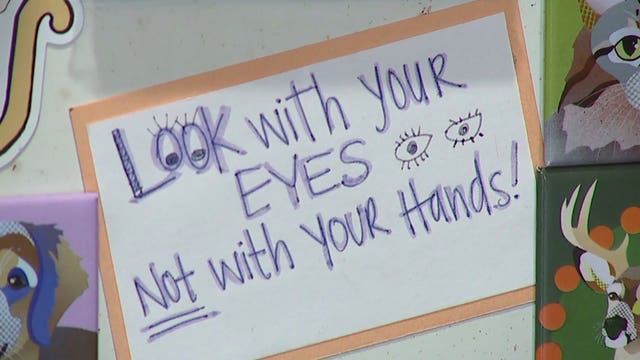 Look with your
EYES
Not with your Hands!